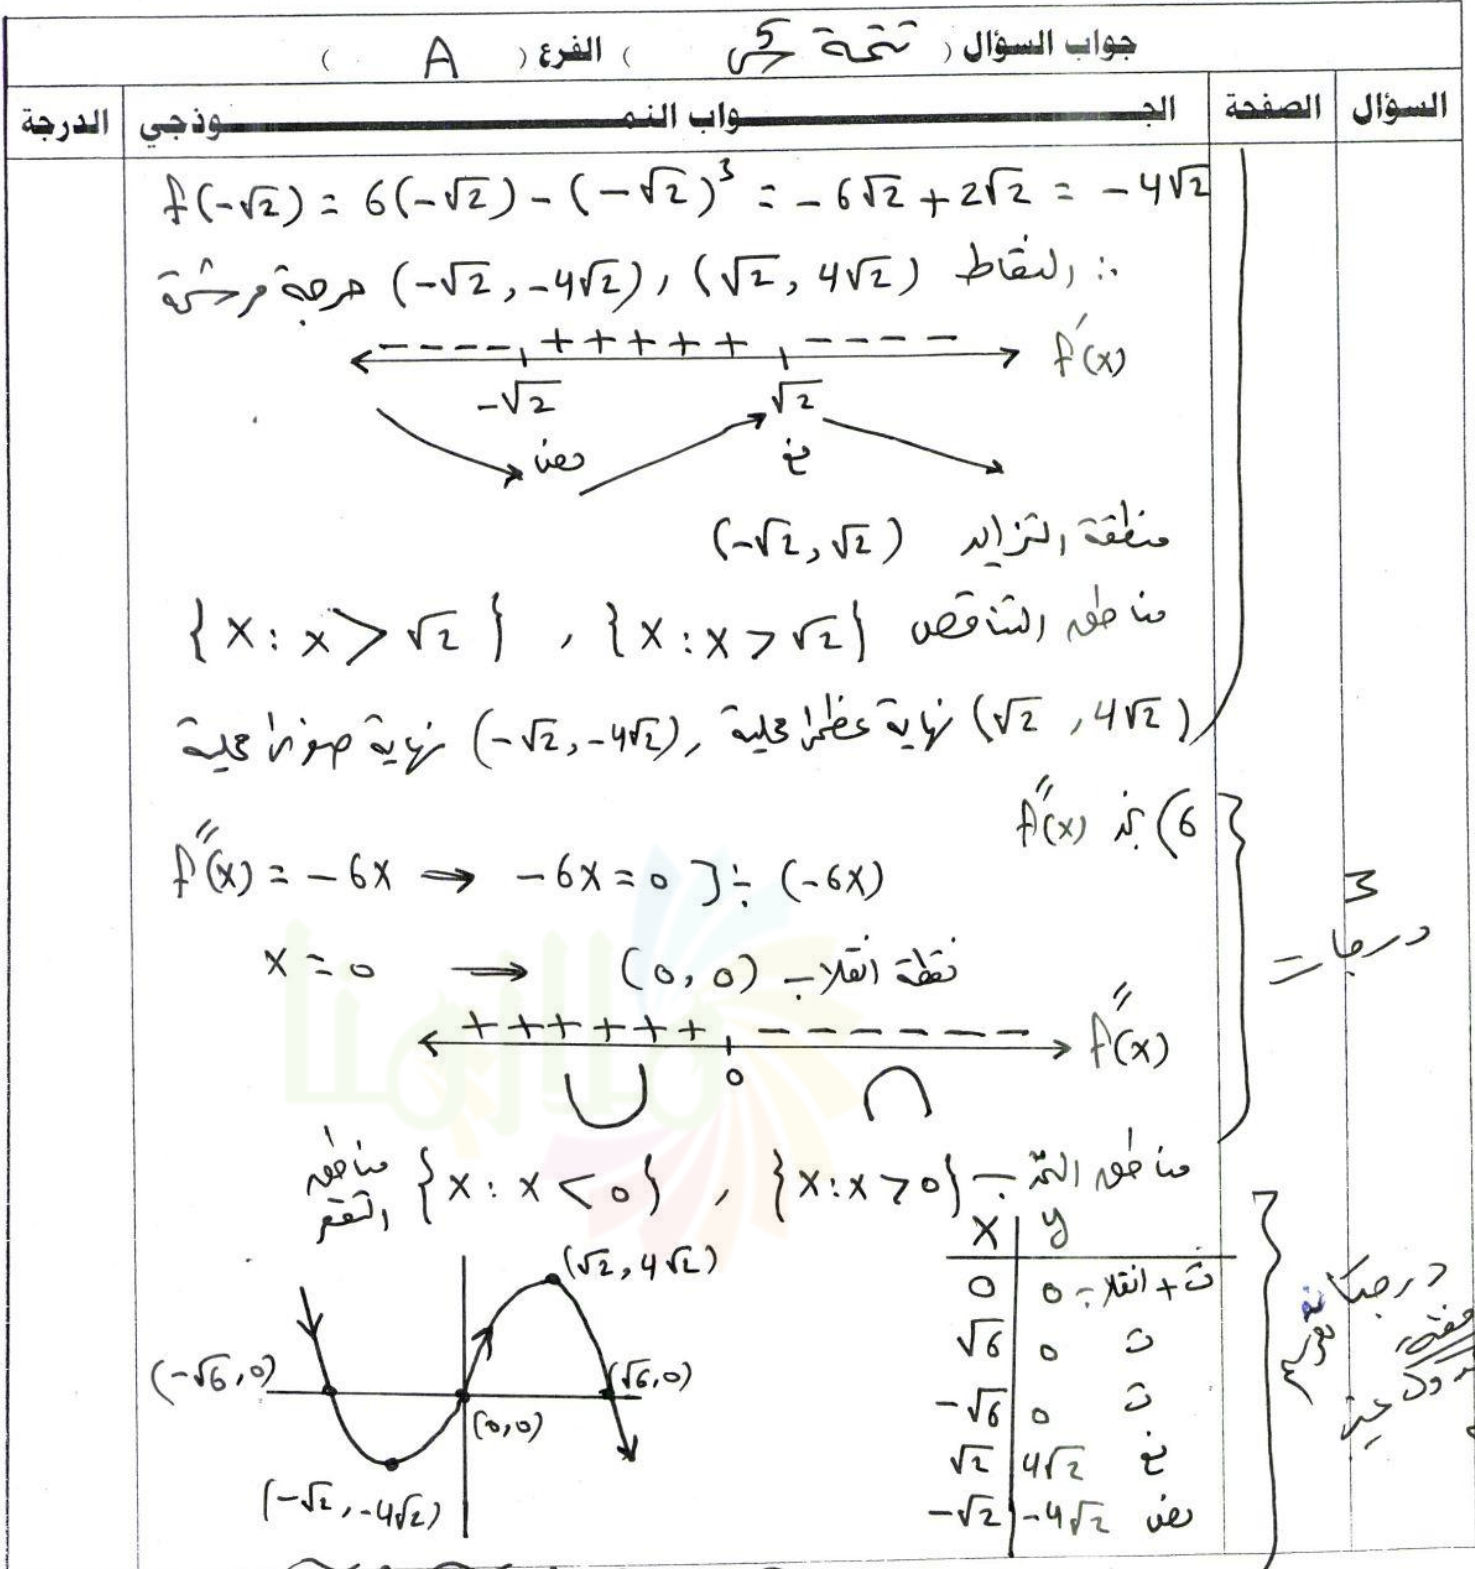 جواب السؤال ( تتمة س5 ) الفرع ( A )
السؤال الصفحة الجـــواب النمـــوذجي الدرجة
f(-√2) = 6(-√2) - (-√2)³ = -6√2 + 2√2 = -4√2
∴ النقاط (√2, 4√2) , (-√2, -4√2) حرجة مرشحة
- - - - + + + + + - - - - f'(x)
-√2 √2
نص نع
منطقة التزايد (-√2, √2)
مناطق التناقص {x : x > √2} , {x : x > √2}
(√2, 4√2) نهاية عظمى محلية , (-√2, -4√2) نهاية صغرى محلية
6) نجد f''(x)
f''(x) = -6x → -6x = 0 ] ÷ (-6x)
3
درجات
x = 0 → (0, 0) نقطة انقلاب
+ + + + + + - - - - - - f''(x)
0
∪ ∩
مناطق التحدب {x : x > 0} , {x : x < 0} مناطق التقعر
x y
0 0 ت + انقلاب
√6 0 ت
-√6 0 ت
√2 4√2 نع
-√2 -4√2 نص
درجتان
(√2, 4√2)
(-√6, 0)
(√6, 0)
(0, 0)
(-√2, -4√2)
ملازمنا